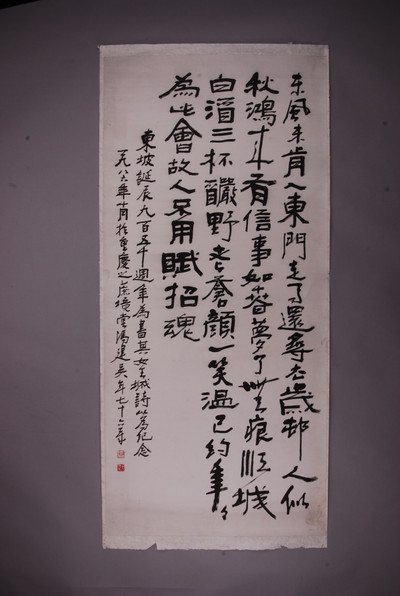 东风未肯入東門走马還尋去歲邨人似
秋鴻来有信事如春夢了無痕江城
白酒三杯釅野老蒼顔一笑温已约年々
為此會故人不用賦招魂
東坡誕辰九百五十週年為書其女王城詩以為紀念
一九八六年十月於重慶之蔗境堂馮建吴年七十六